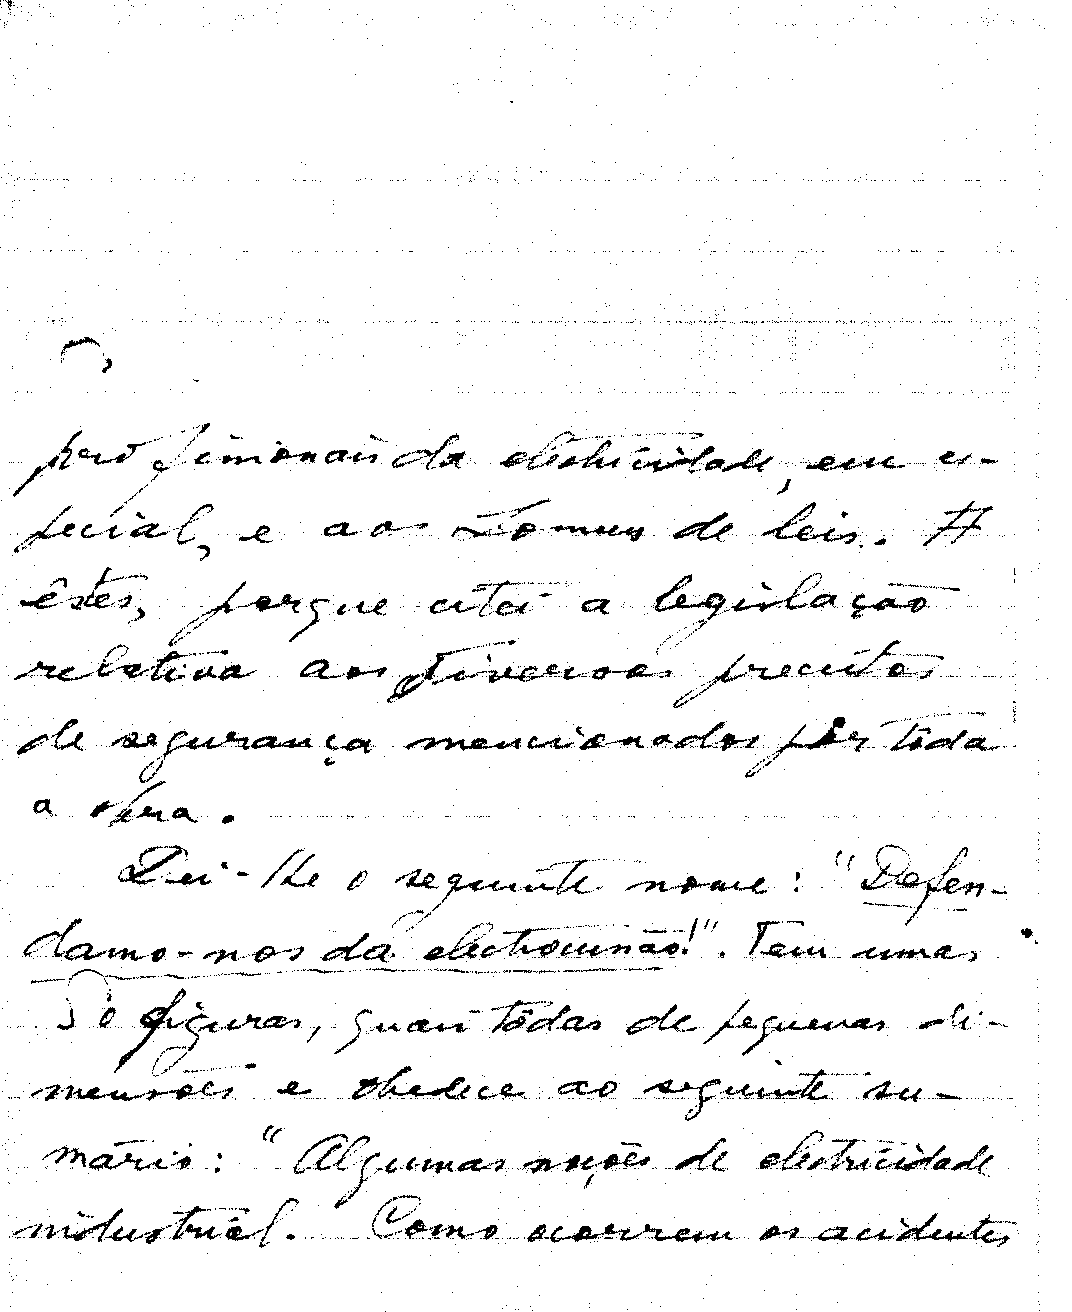 profissionais da electricidade, em es-
pecial, e aos homens de leis. A
êstes, porque citei a legislação
relativa aos diversos preceitos
de segurança mencionados por tôda
a obra.
Dei-lhe o seguinte nome: "Defen-
damo-nos da electrocussão!". Tem umas
50 figuras, quasi tôdas de pequenas di-
mensões e obedece ao seguinte su-
mário: "Algumas noções de electricidade
industrial. Como ocorrem os acidentes